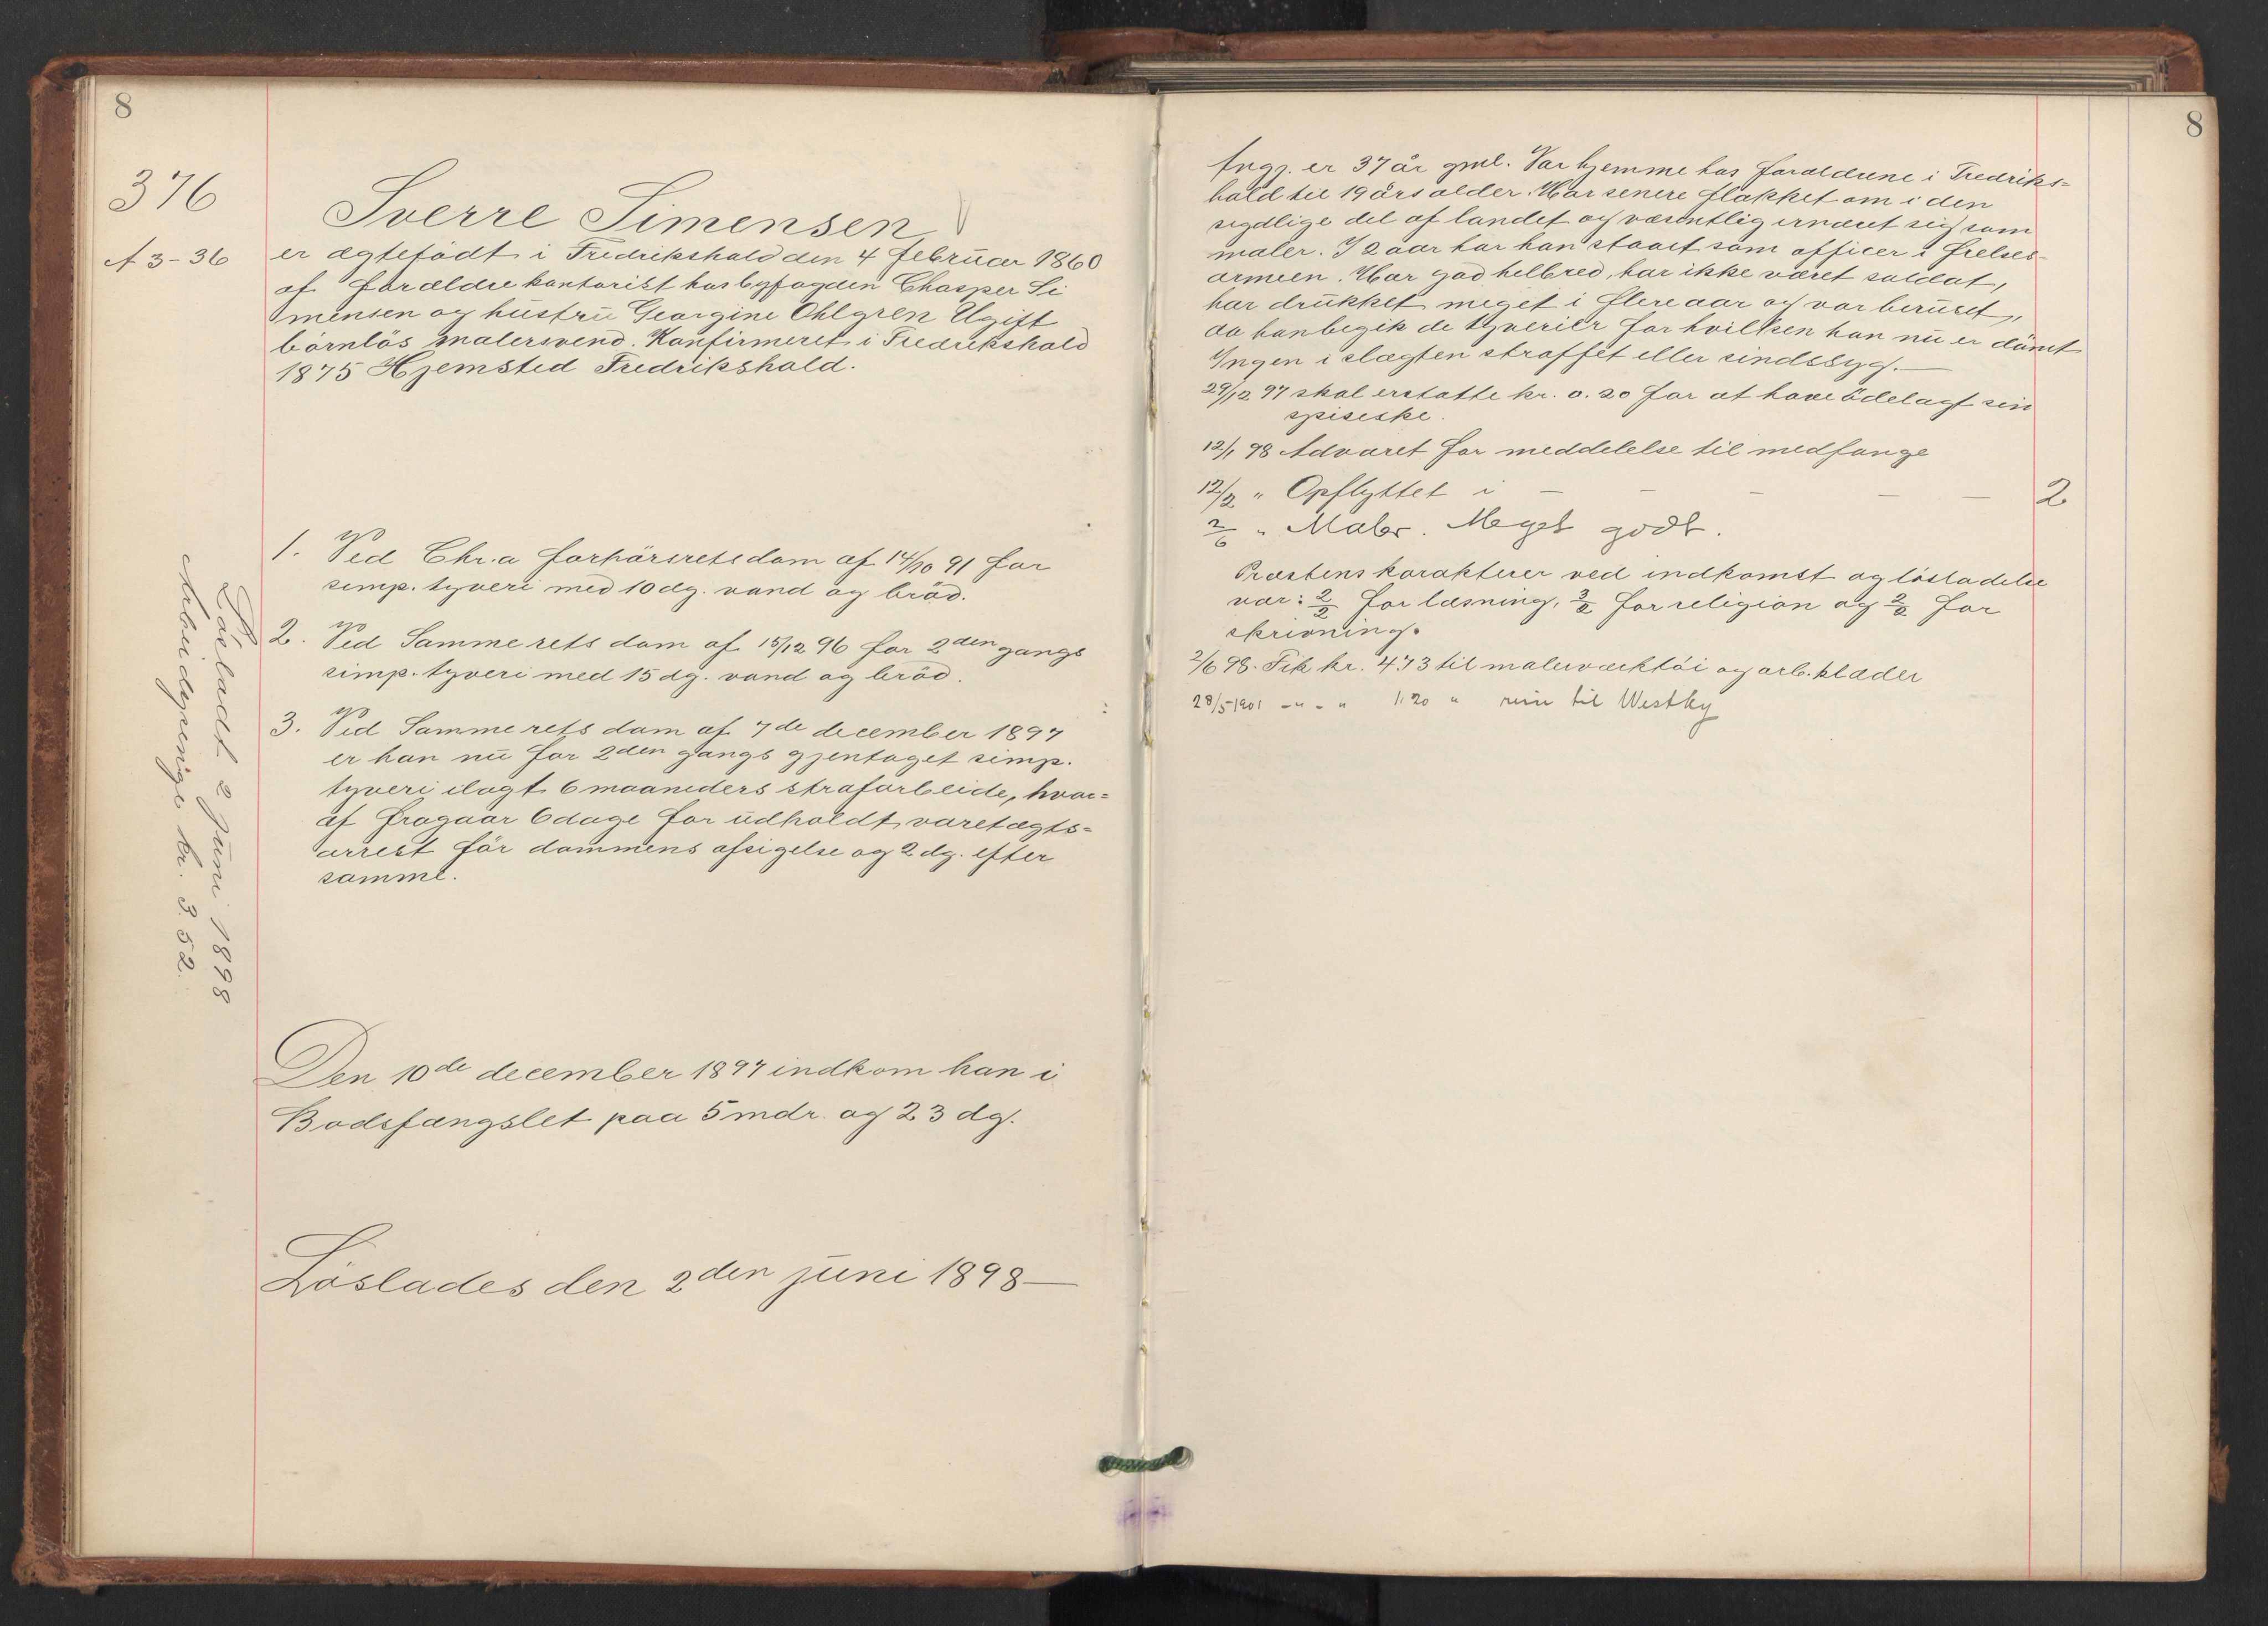 8
376
A 3-36
Sverre Simensen
er ægtefödt i Fredrikshald den 4 februar 1860
af forældre kontorist hos byfogden Chasper Si
mensen og hustru Georgine Ohlgren Ugift
börnlös malersvend. Konfirmeret i Fredrikshald
1875 Hjemsted Fredrikshald.
1. Ved Chr.a forhörsretsdom af 14/10 91 for
simp. tyveri med 10 dg. vand og bröd.
2. Ved Samme rets dom af 15/12 96 for 2den gangs
simp. tyveri med 15 dg. vand og bröd.
3. Ved Samme rets dom af 7de december 1897
er han nu for 2den gangs gjentaget simp.
tyveri ilagt 6 maaneders strafarbeide, hvor=
af fragaar 6 dage for udholdt varetægts=
arrest för dommens afsigelse og 2 dg. efter
samme.
Lösladt 2 juni 1898
Arbeidspenge kr. 3.52.
Den 10de december 1897 indkom han i
Bodsfængslet paa 5 mdr. og 23 dg.
Löslades den 2den juni 1898—
8
Angj. er 37 år gml. Var hjemme hos forældrene i Fredriks=
hald til 19 års alder. Har senere flakket om i den
sydlige del af landet og væsentlig ernæret sig som
maler. I 2 aar har han staaet som officer i frelses-
armeen. Har god helbred, har ikke været soldat,
har drukket meget i flere aar og var beruset,
da han begik de tyverier for hvilken han nu er dömt
Ingen i slægten straffet eller sindssyg.—
29/12 97 skal erstatte kr. 0.20 for at have ödelagt sin
spiseske.
12/1 98 Advaret for meddelelse til medfange
12/2 " Opflyttet i — — — — — 2
2/6 " Maler. Meget godt.
Præstens karakterer ved indkomst og lösladelse
var: 2/2 for læsning, 3/2 for religion og 2/2 for
skrivning.
2/6 98. Fik kr. 4.73 til malerværktöi og arb. klæder
28/5 1901 -"-" 1.20 " reise til Westby